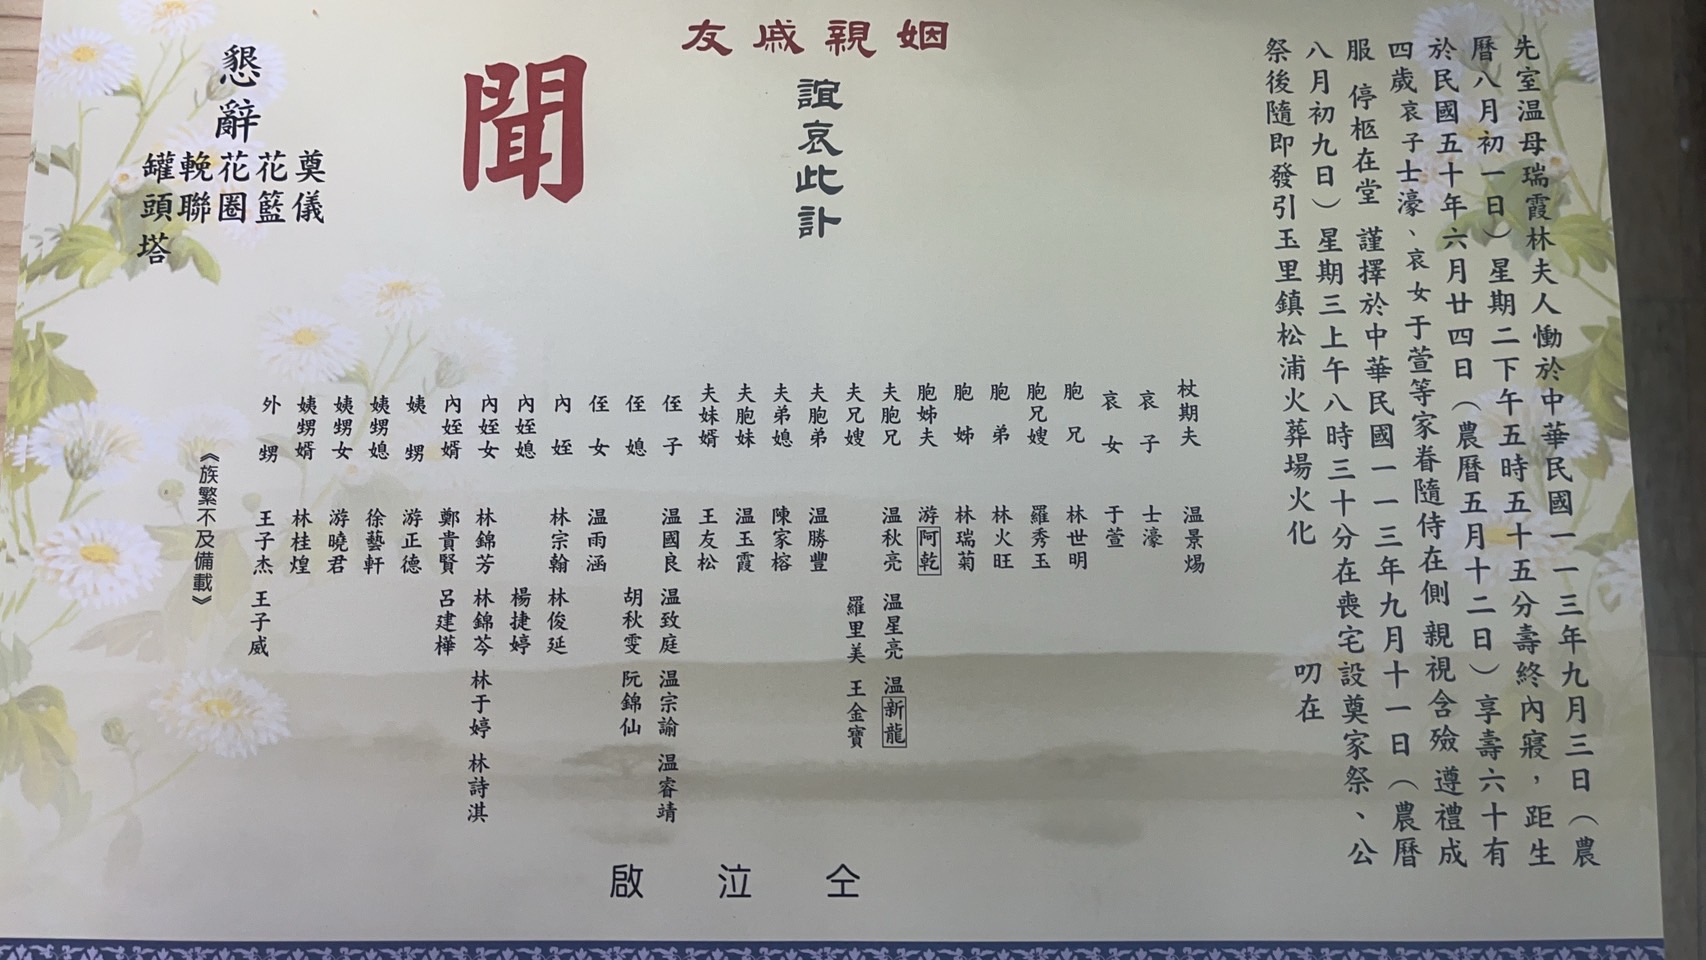 先室温母瑞霞林夫人慟於中華民國一一三年九月三日（農
曆八月初一日）星期二下午五時五十五分壽終內寢，距生
於民國五十年六月廿四日（農曆五月十二日）享壽六十有
四歲哀子士濠、哀女于萱等家眷隨侍在側 親視含殮 遵禮成
服 停柩在堂 謹擇於中華民國一一三年九月十一日（農曆
八月初九日）星期三上午八時三十分在喪宅設奠家祭、公
祭後隨即發引玉里鎮松浦火葬場火化 叨在
姻親戚友
誼哀此訃
聞
杖期夫 温景煬
哀子 士濠
哀女 于萱
胞兄 林世明
胞兄嫂 羅秀玉
胞弟 林火旺
胞姊 林瑞菊
胞姊夫 游阿乾
夫胞兄 温秋亮 温星亮 温新龍
夫兄嫂 羅里美 王金寶
夫胞弟 温勝豐
夫弟媳 陳家榕
夫胞妹 温玉霞
夫妹婿 王友松
侄子 温國良 温致庭 温宗諭 温睿靖
侄媳 胡秋雯 阮錦仙
侄女 温雨涵
內姪 林宗翰 林俊延
內姪媳 楊捷婷
內姪女 林錦芳 林錦芩 林于婷 林詩淇
內姪婿 鄭貴賢 呂建樺
姨甥 游正德
姨甥媳 徐藝軒
姨甥女 游曉君
姨甥婿 林桂煌
外甥 王子杰 王子威
《族繁不及備載》
仝泣啟
懇辭
奠儀
花籃
花圈
輓聯
罐頭塔